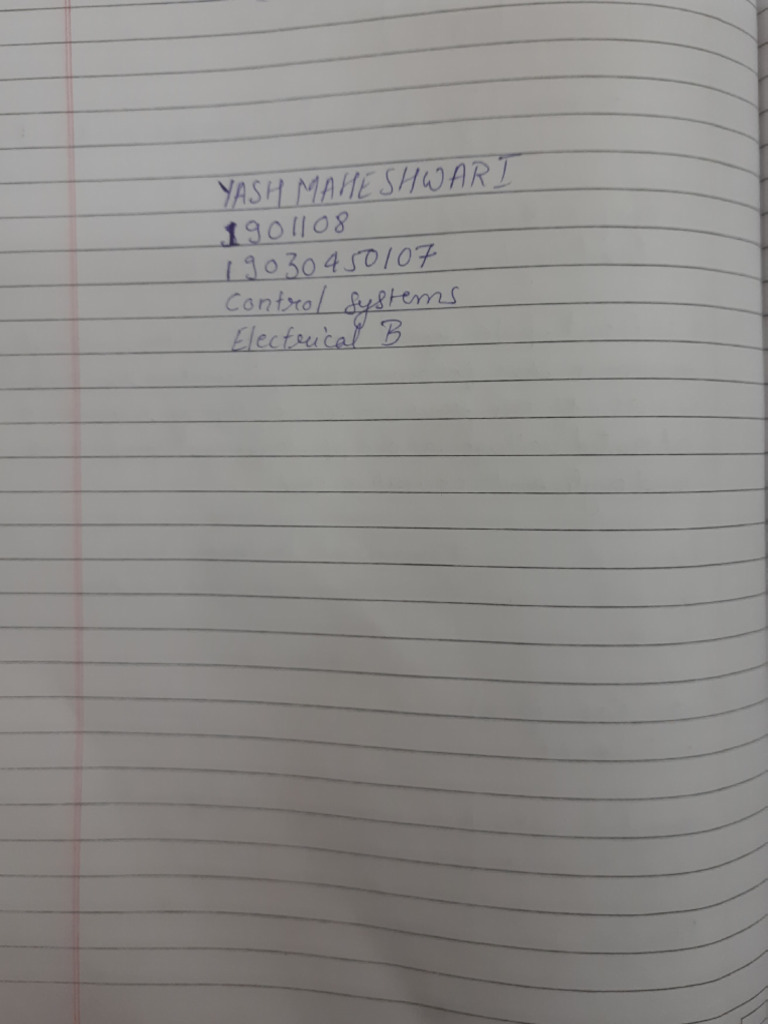 YASH MAHESHWARI
1901108
19030450107
Control systems
Electrical B